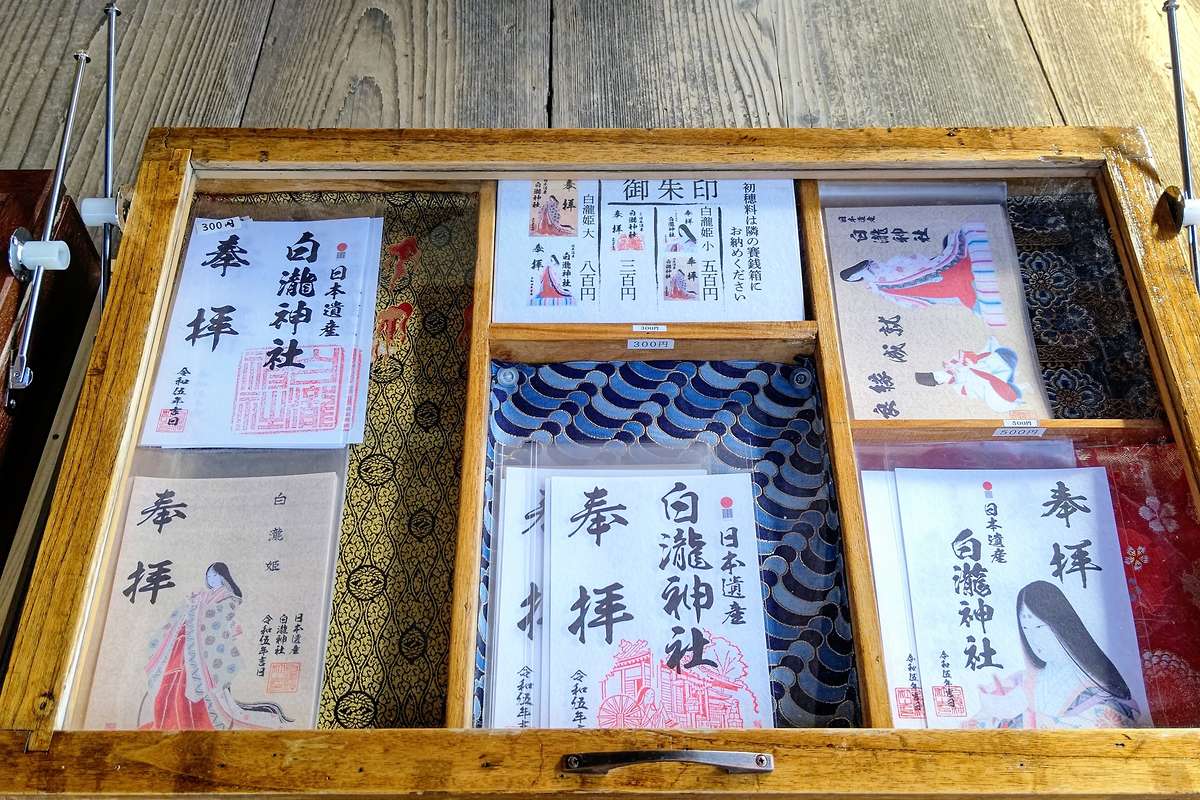 300円
奉拝
日本遺産
白瀧神社
令和伍年吉日
奉拝
白瀧姫
日本遺産
白瀧神社
令和伍年吉日
御朱印
初穂料は隣の賽銭箱に
お納めください
白瀧姫 小 五百円
三百円
白瀧姫 大 八百円
奉拝
白瀧神社
300円
300円
奉拝
日本遺産
白瀧神社
令和伍年
令和伍年
日本遺産
白瀧神社
良縁成就
500円
500円
奉拝
日本遺産
白瀧神社
令和伍年吉日
令和伍年吉日